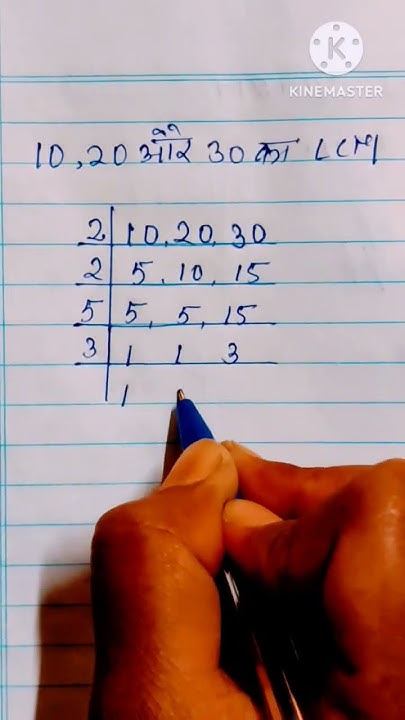 K
KINEMASTER
10, 20 और 30 का LCM
2 | 10, 20, 30
2 | 5, 10, 15
5 | 5, 5, 15
3 | 1 1 3
1